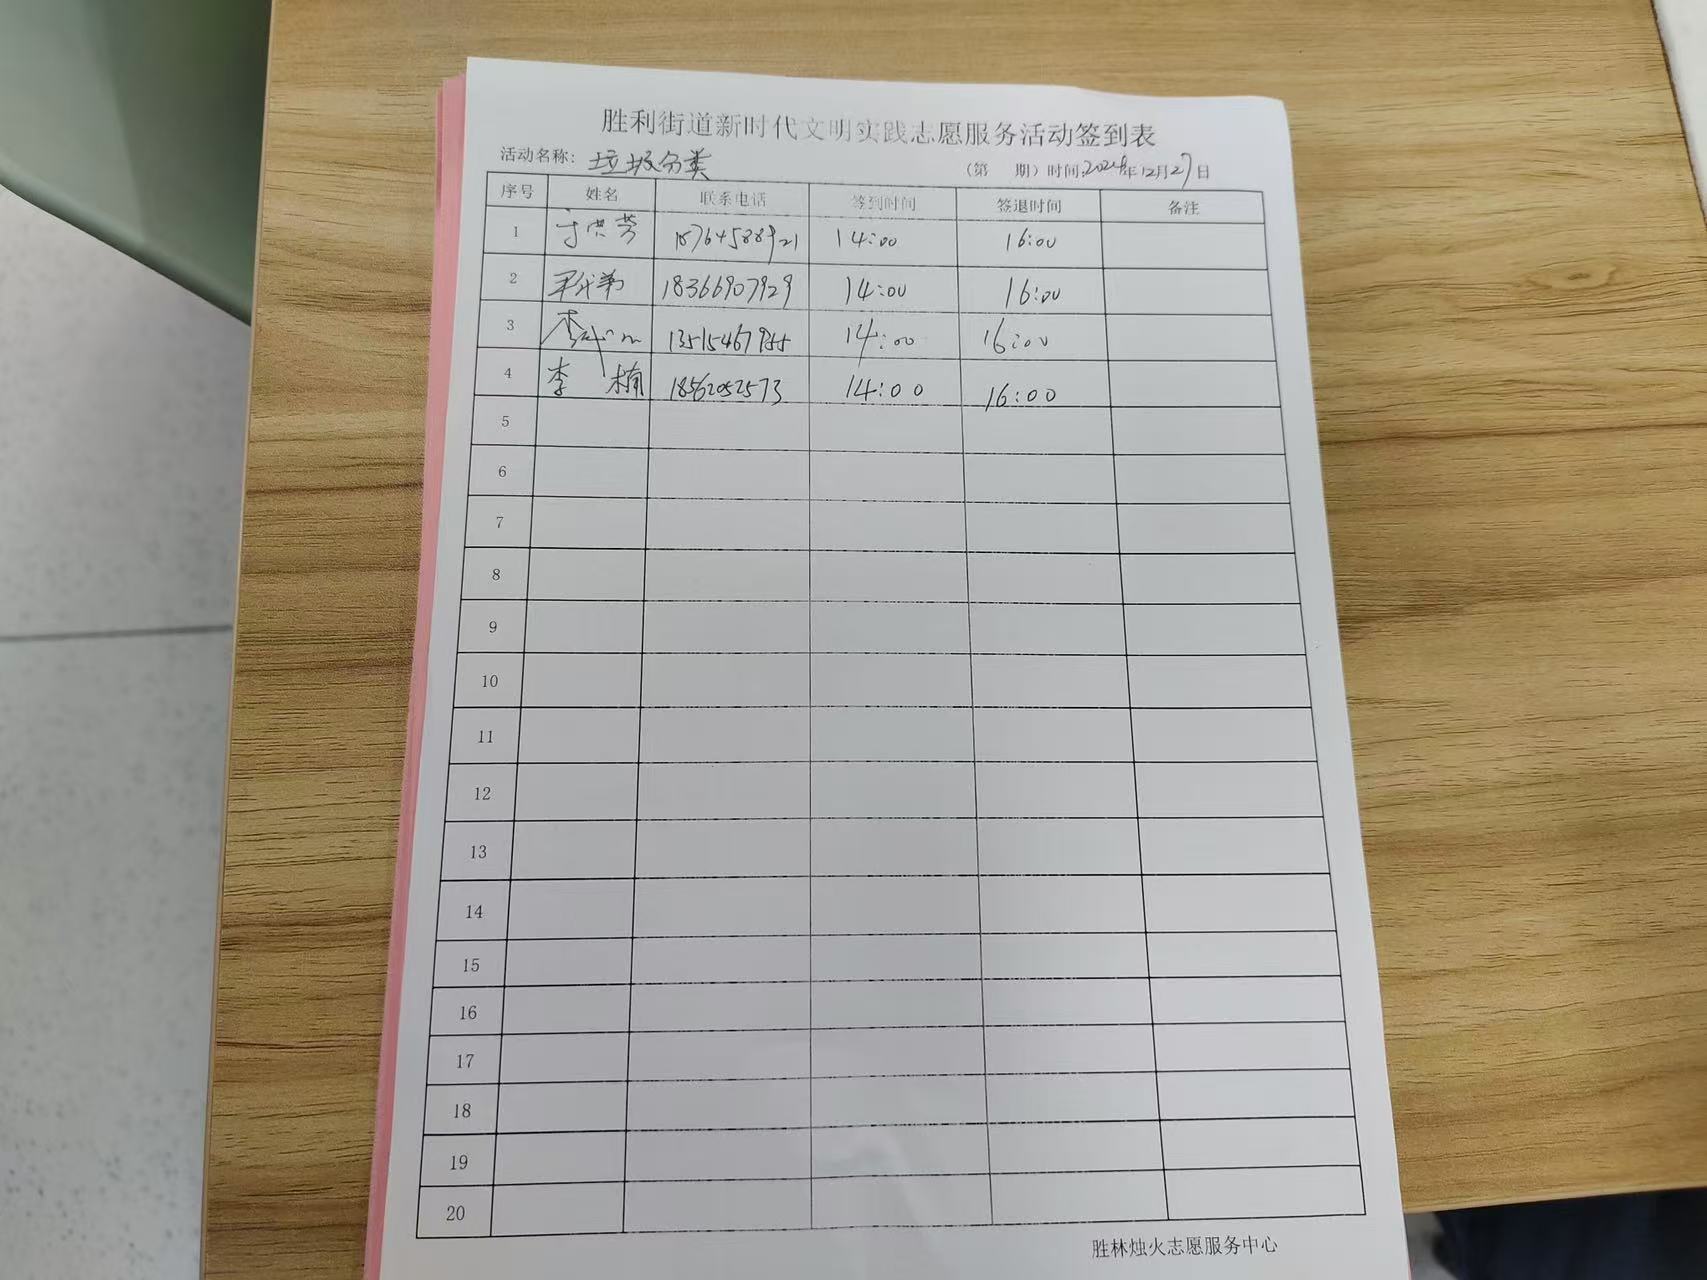 胜利街道新时代文明实践志愿服务活动签到表
活动名称：垃圾分类 （第 期）时间：2024年12月27日
序号 姓名 联系电话 签到时间 签退时间 备注
1 于洪芳 18764588921 14:00 16:00
2 18366907929 14:00 16:00
3 李 13515467955 14:00 16:00
4 李楠 18562052573 14:00 16:00
5
6
7
8
9
10
11
12
13
14
15
16
17
18
19
20
胜林烛火志愿服务中心